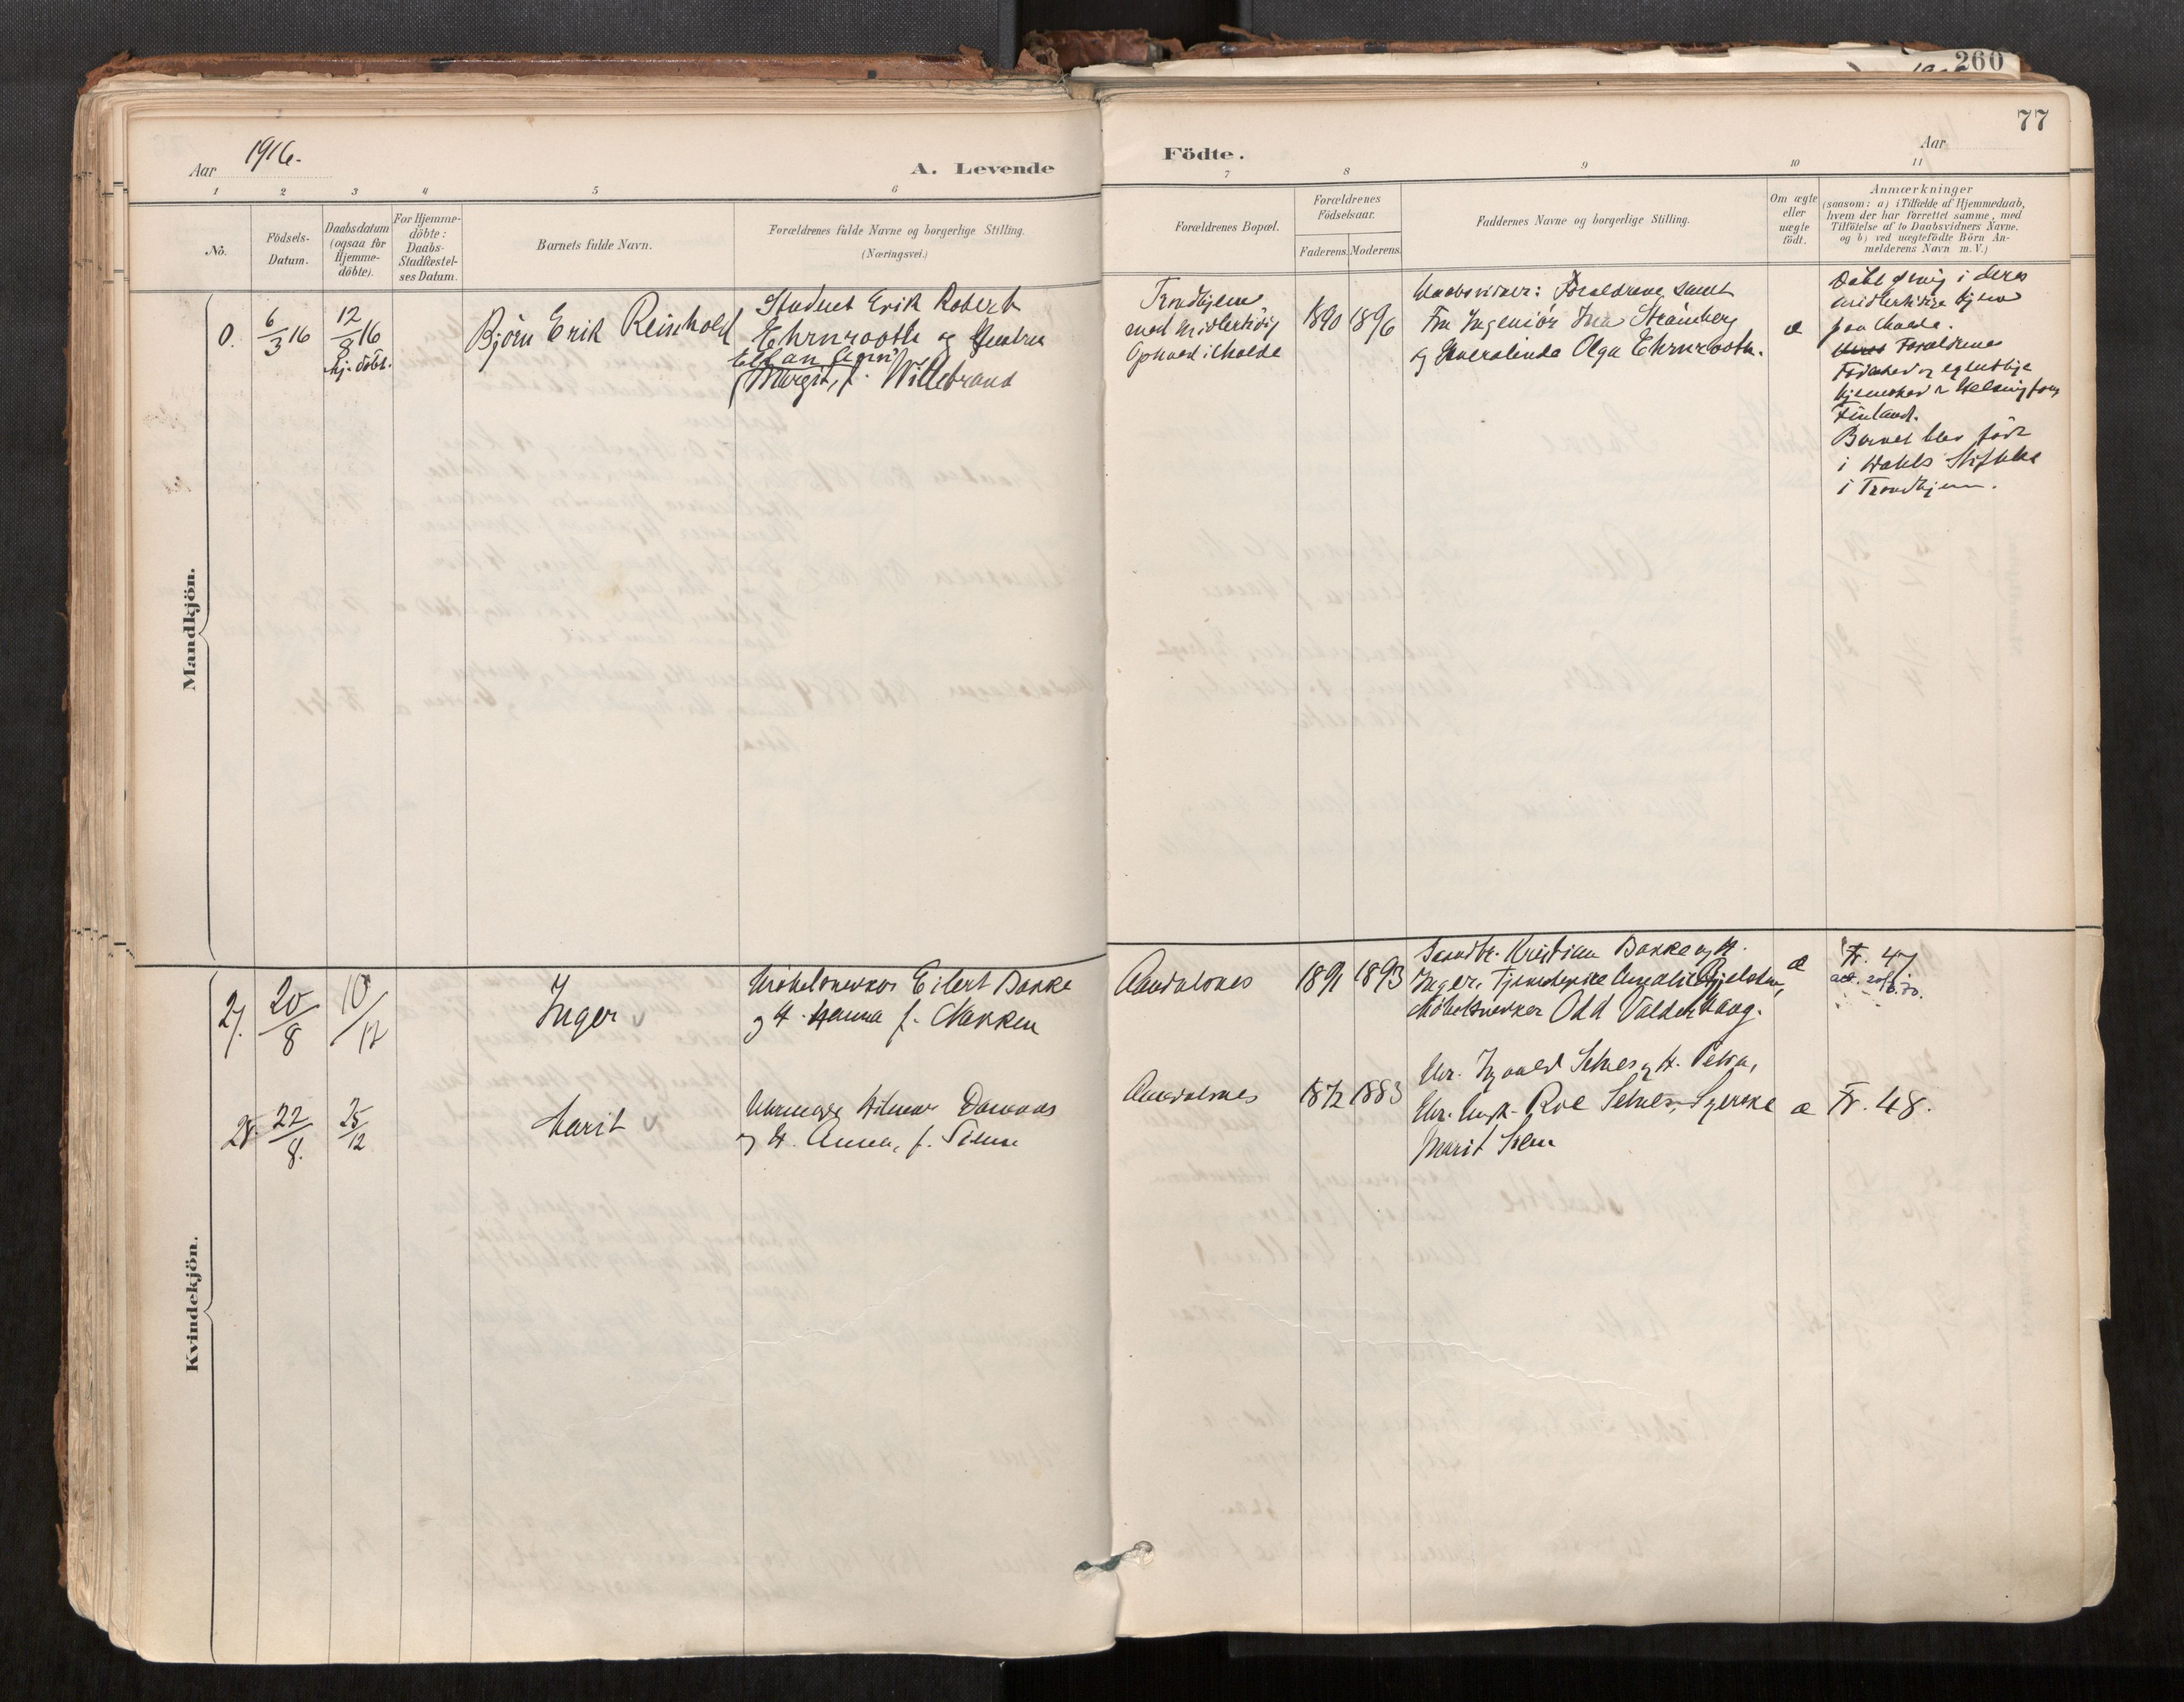 260
77
Aar 1916.
A. Levende
Födte.
Aar
1
2
3
4
5
6
7
8
9
10
11
No.
Födsels-
Datum.
Daabsdatum
(ogsaa for
Hjemme-
döbte).
For Hjemme-
döbte:
Daabs-
Stadfæstel-
ses Datum.
Barnets fulde Navn.
Forældrenes fulde Navne og borgerlige Stilling.
(Næringsvei.)
Forældrenes Bopæl.
Forældrenes
Födselsaar.
Faderens.
Moderens.
Faddernes Navne og borgerlige Stilling.
Om ægte
eller
uægte
födt.
Anmærkninger
(saasom: a) i Tilfælde af Hjemmedaab,
hvem der har forrettet samme, med
Tilföielse af to Daabsvidners Navne.
og b) ved uægtefödte Börn An-
melderens Navn m.V.)
Mandkjön.
0.
6/3 16
12/8 16
hj. döbt.
Björn Erik Reinhold
Student Erik Robert
Ehrnrooth og Hustru
Margit, f. Willebrand
Trondhjem
med midlertidig
Ophold i Molde
1890
1896
Forældrene samt
Fru Ingeniör Ina
og Olga Ehrnrooth.
æ
Döbt af mig i deres
midlertidige Hjem
paa Molde.
Forældrenes
Födested og egentlige
Hjemsted er Helsingfors
Finland.
Barnet blev född
i Dahls Stiftelse
i Trondhjem.
Kvindekjön.
27.
20/8
10/12
Inger
Möbelsnekker Eilert Bakke
og H. Hanna f. Nakken
Aandalsnes
1891
1893
Kristian Bakke og H.
Inger,
Möbelsnekker Odd Valde Haag.
æ
Fr. 47
28.
22/8.
25/12
Marit
Hilmar
og H. Anna, f.
Aandalsnes
1872
1883
Ingvald Setnes og H. Petra,
Roe Setnes,
Marit
æ
Fr. 48.